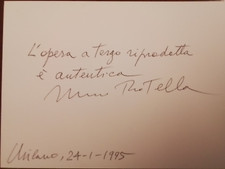 L'opera a tergo riprodotta
è autentica
Mimmo Rotella
Milano, 24-1-1995